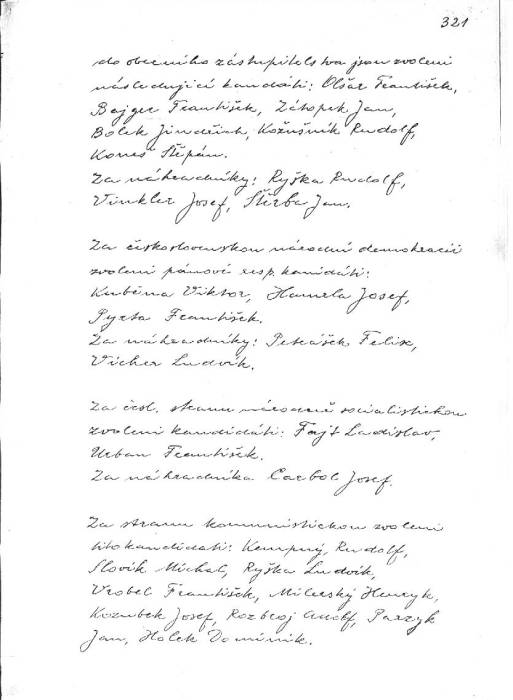 321
do obecního zástupitelstva jsou zvoleni
následující kandáti: Olšar František,
Bajger František, Zátopek Jan,
Bölek Jindřich, Kožušník Rudolf,
Koneš Štěpán.
Za náhradníky: Ryška Rudolf,
Vinkler Josef, Štěrba Jan.
Za československou národní demokracii
zvoleni pánové resp. kanidáti:
Kuběna Viktor, Hamela Josef,
Pyxta František.
Za náhradníky: Petrášek Felix,
Vicher Ludvík.
Za čsl. stranu národně socialistickou
zvoleni kandidáti: Fajt Ladislav,
Urban František.
Za náhradníka Carbol Josef.
Za stranu komunistickou zvoleni
tito kandidáti: Kempný, Rudolf,
Slovík Michal, Ryška Ludvík,
Vrobel František, Milerský Henryk,
Kozubek Josef, Rozbroj Adolf, Parzyk
Jan, Holek Dominik.